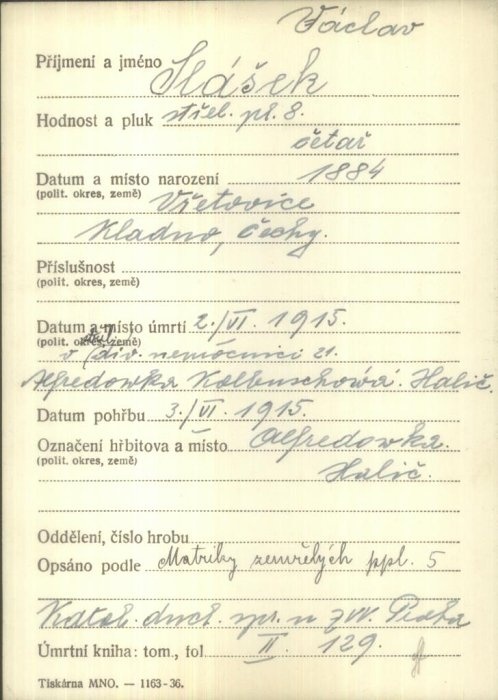 Václav
Příjmení a jméno Slášek
Hodnost a pluk střel. pl. 8.
četař
Datum a místo narození 1884
(polit. okres, země) Všetovice
Kladno, Čechy.
Příslušnost
(polit. okres, země)
Datum a místo úmrtí 2./VI. 1915.
(polit. okres, země)
v div. nemocnici 21.
Alfredowka Kolbuschówá. Halič.
Datum pohřbu 3./VI. 1915.
Označení hřbitova a místo Alfredowka.
(polit. okres, země) Halič.
Oddělení, číslo hrobu
Opsáno podle Matriky zemřelých ppl. 5
Katol. duch. spr. u ZVV. Praha
Úmrtní kniha: tom., fol. II. 129.
Tiskárna MNO. — 1163-36.